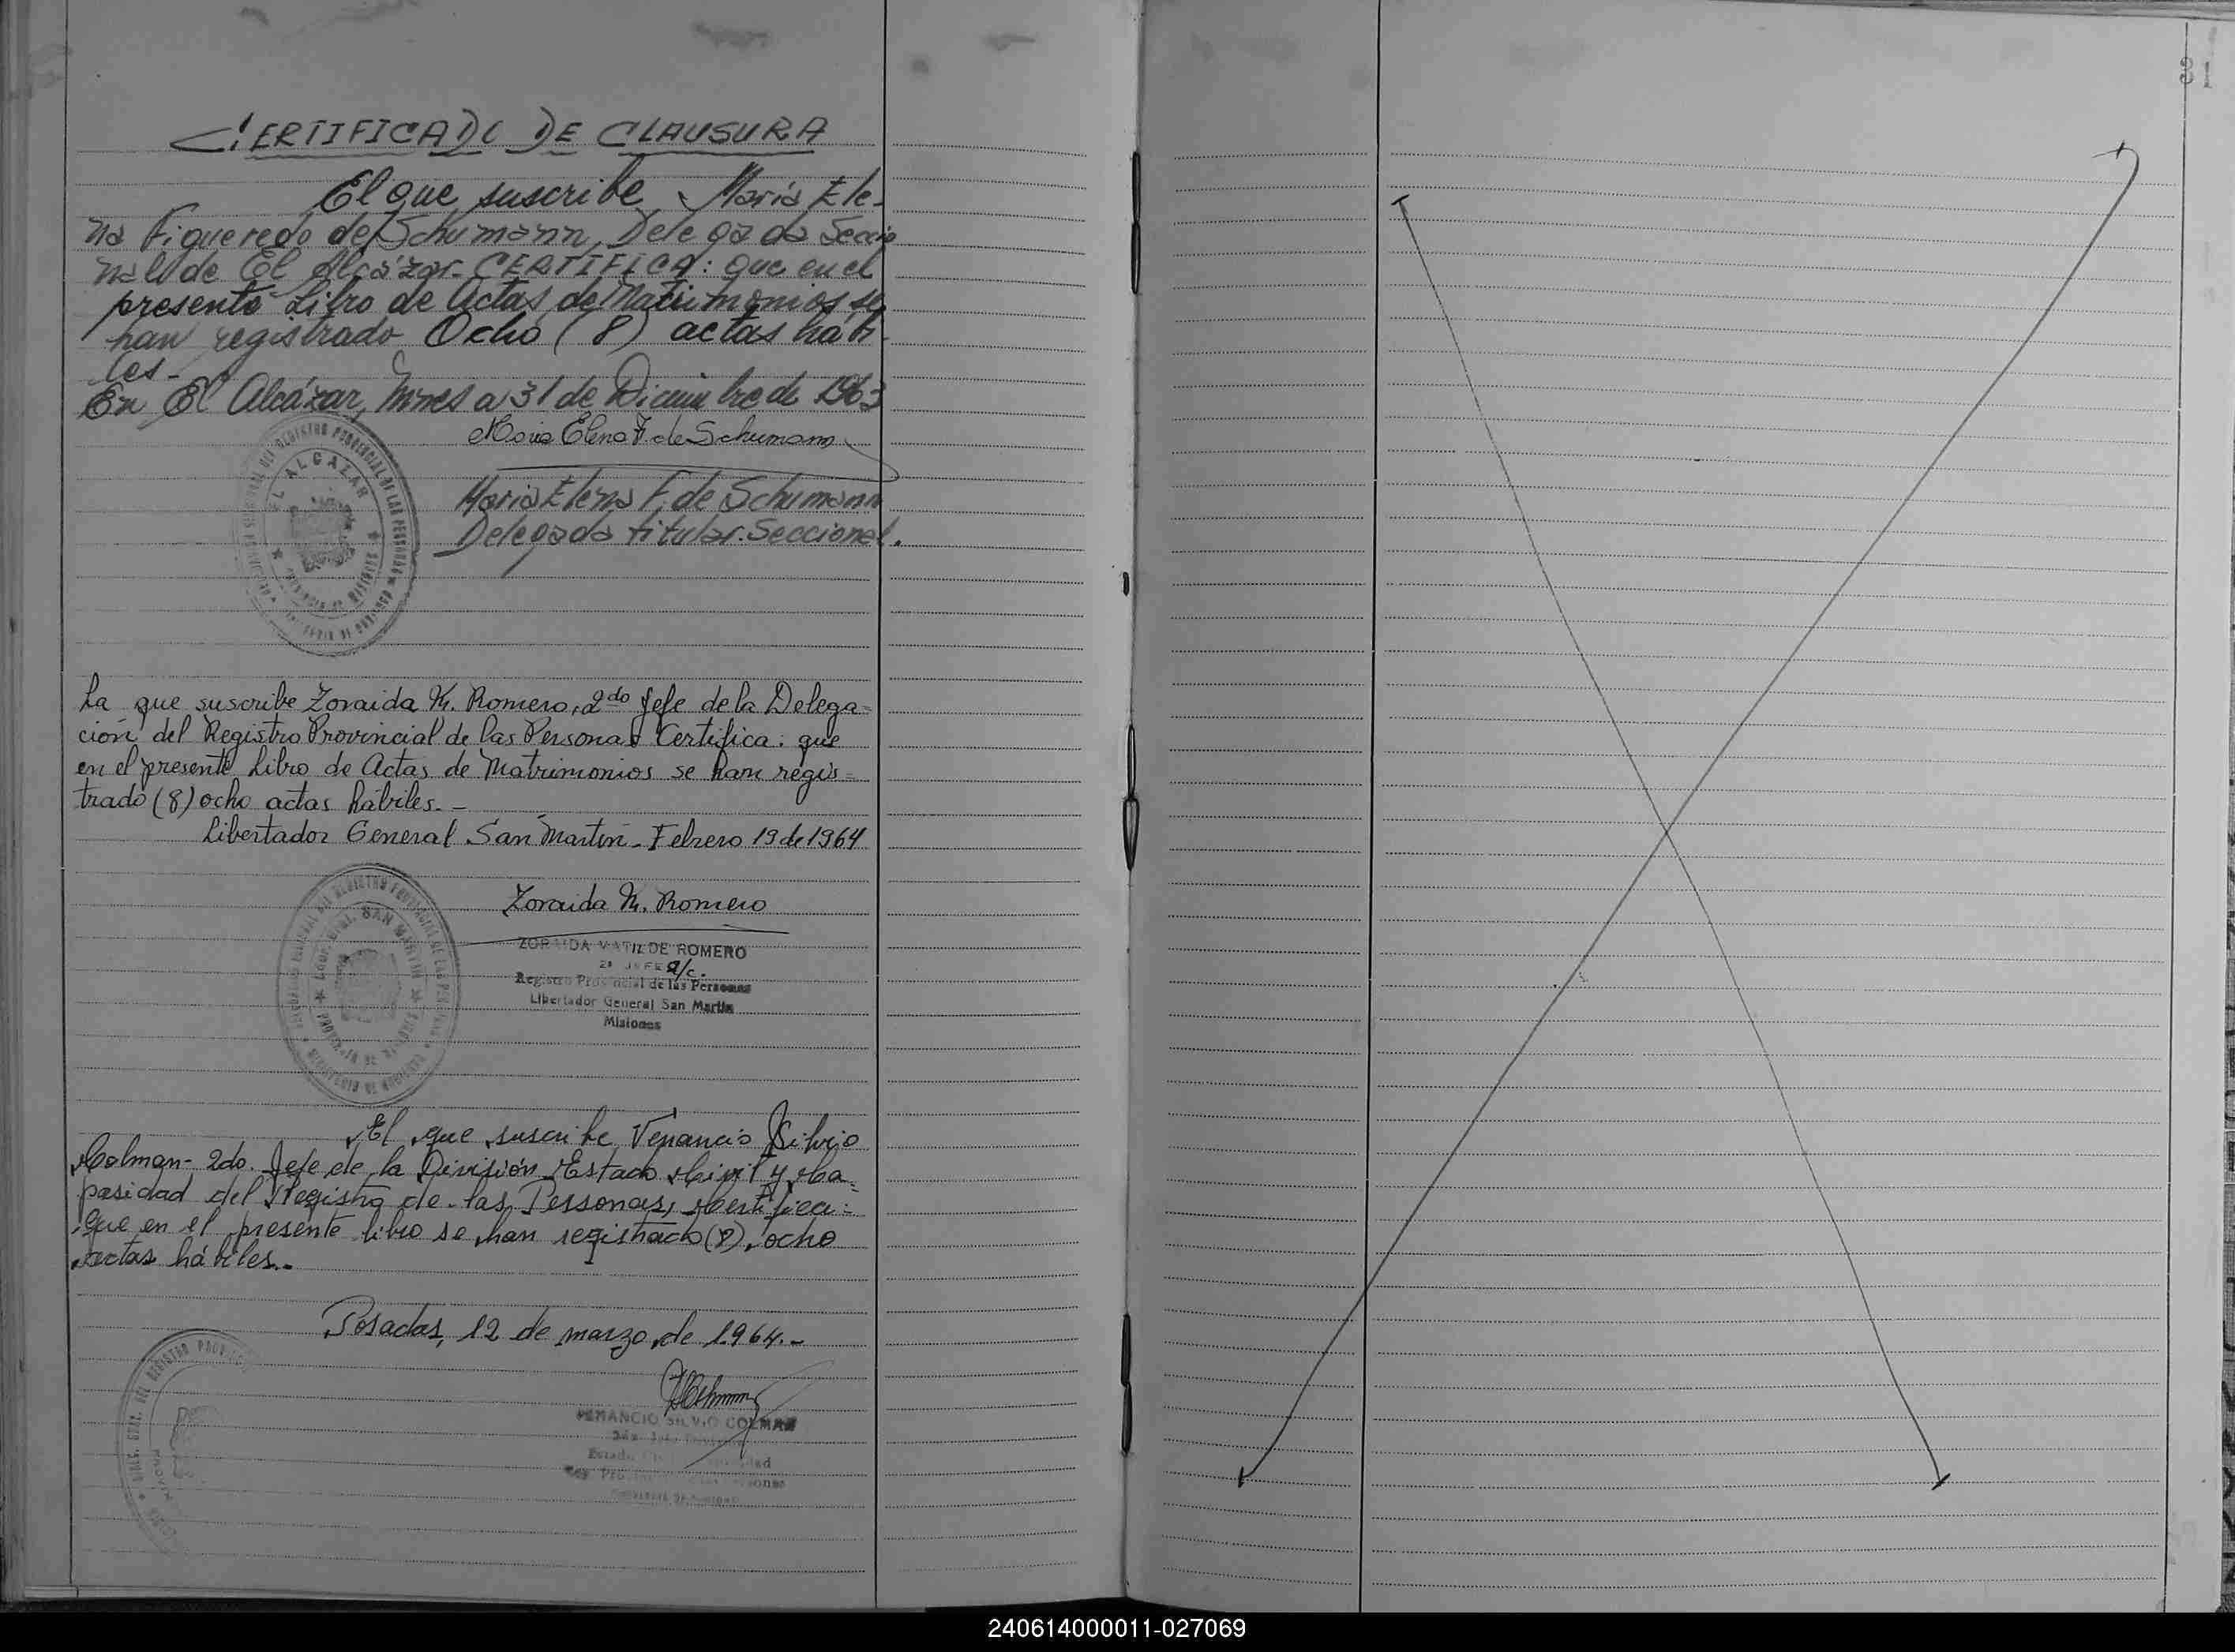 CERTIFICADO DE CLAUSURA
El que suscribe, María Ele-
na Figueredo de Schumann, Delegada Seccio
nal de El Alcázar. CERTIFICA: que en el
presente Libro de Actas de Matrimonios se
han registrado Ocho (8) actas hábi-
les.-
En El Alcázar, Mnes a 31 de Diciembre de 1963
Maria Elena F. de Schumann
Maria Elena F. de Schumann
Delegada titular. Seccional.
EL ALCAZAR
La que suscribe Zoraida M. Romero, 2do Jefe de la Delega=
ción del Registro Provincial de las Personas Certifica: que
en el presente Libro de Actas de Matrimonios se han regis=
trado (8) ocho actas hábiles.-
Libertador General San Martín. Febrero 19 de 1964
Zoraida M. Romero
ZORAIDA MATILDE ROMERO
2º JEFE a/c.
Registro Provincial de las Personas
Libertador General San Martín
Misiones
El que suscribe Venancio Silvio
Colman- 2do. Jefe de la División Estado Civil y Ca=
pasidad del Registro de las Personas, Certifica:
que en el presente libro se han registrado (8) ocho
actas hábiles.-
Posadas, 12 de marzo de 1964.-
VENANCIO SILVIO COLMAN
31
240614000011-027069